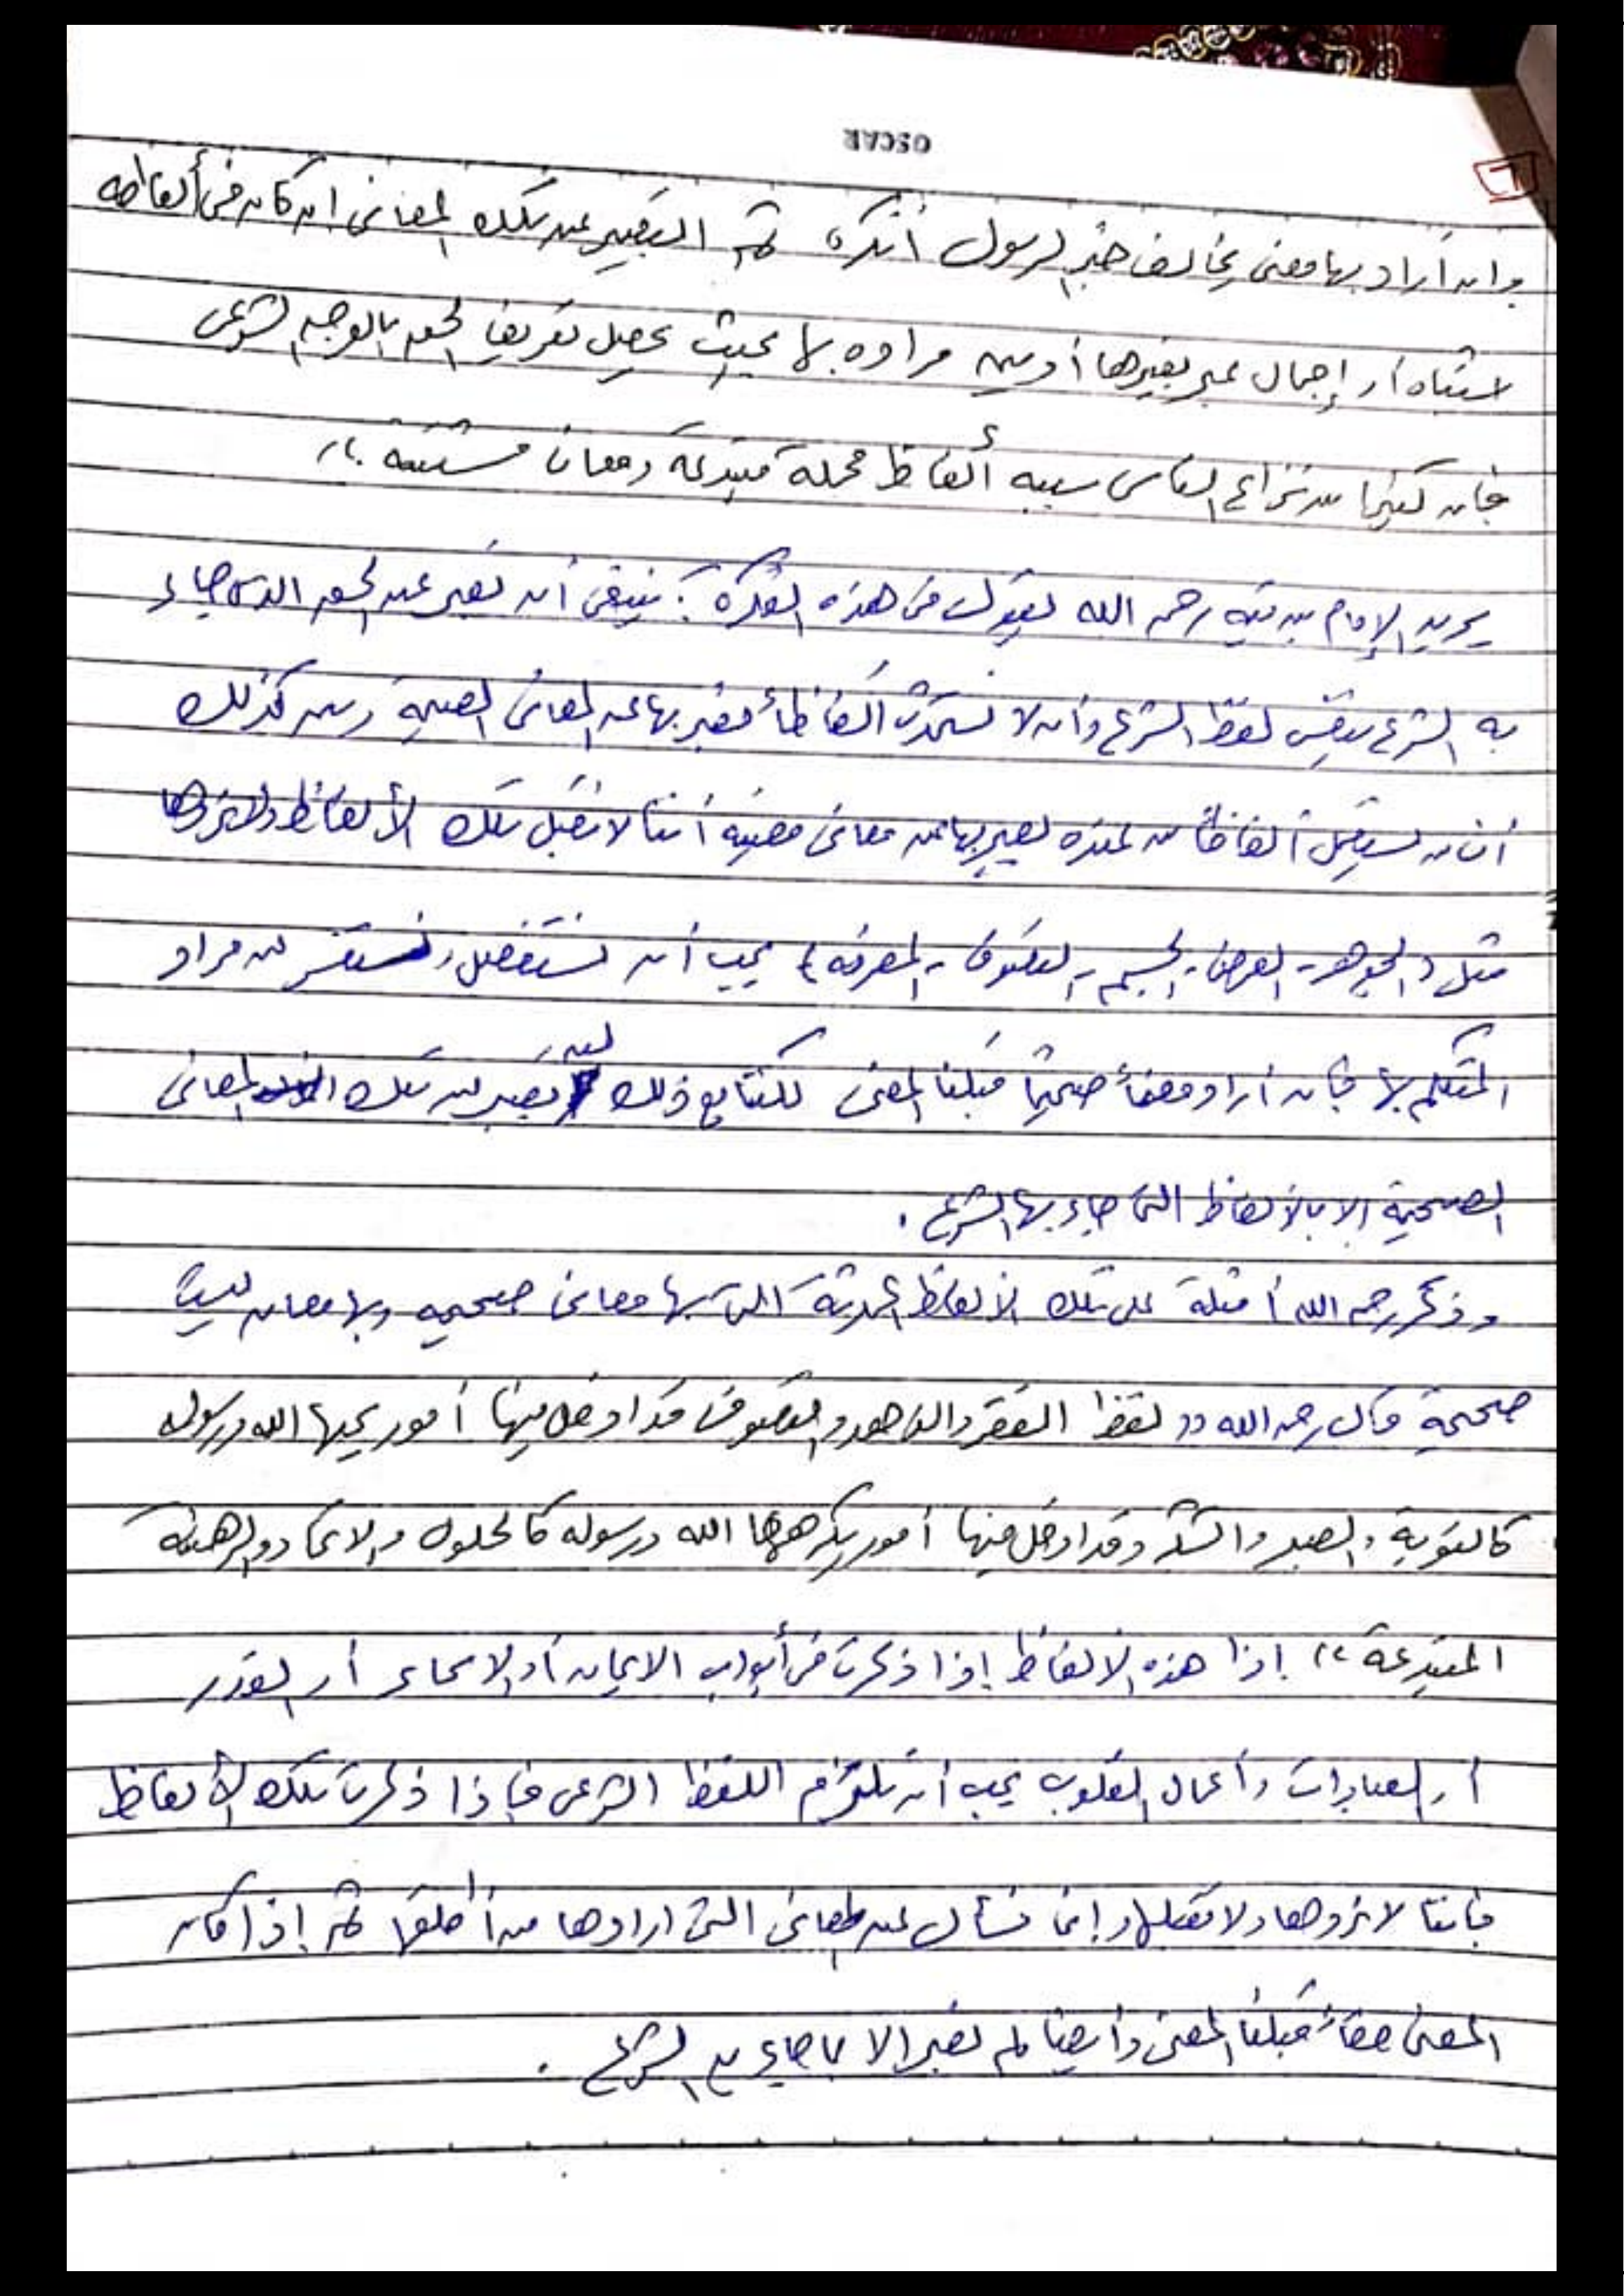 OSCAR
٦
وان أراد بها معنى يخالف خبر الرسول أنكره ثم التعبير عن تلك المعاني ان كان في ألفاظه
اشتباه أو إجمال عبر بغيرها أو بين مراده بها بحيث يحصل تعريف الحق بالوجه الشرعي
فإن كثيرا من نزاع الناس سببه ألفاظ مجملة مبتدعة ومعان مشتبه ،،
يريد الإمام بن تيميه رحمه الله ليقول في هذه الفقرة : ينبغي أن نعبر عن الحق الذي جاء
به الشرع بنفس لفظ الشرع وأن لا نستحدث ألفاظاً نعبر بها عن المعاني الصحيحة ومن كذلك
أن من يستعمل ألفاظاً من عنده ليعبر بها عن معاني معينه أننا لا نقبل تلك الألفاظ ولا نردها
مثل (الجوهر - العرض - الجسم - التصوف - المعرفه) يجب أن نستفصل ونستفسر من مراد
المتكلم بها فإن أراد معناً صحيحاً قبلنا المعنى لكننا مع ذلك لن نعبر عن تلك المعاني
الصحيحة إلا بالألفاظ التي جاء بها الشرع .
وذكر رحمه الله أمثلة على تلك الألفاظ المحدثة التي بها معاني صحيحه وبها معان ليست
صحيحة قال رحمه الله (( لفظ الفقر والزاهد والتصوف قد ادخل فيها أمور يحبها الله ورسوله
كالتوبة والصبر والشكر وقد ادخل فيها أمور يكرهها الله ورسوله كالحلول والاتحاد والرهبنة
المبتدعة ،، إذا هذه الألفاظ إذا ذكرت في أبواب الايمان أو الاسماء أو القدر
أو العبادات وأعمال القلوب يجب أن نلتزم اللفظ الشرعي فإذا ذكرت تلك الألفاظ
فإننا لا نردها ولا نقبلها وإنما نسأل عن المعاني التي ارادها من أطلقها ثم إذا كان
المعنى حقاً قبلنا المعنى وأيضا لم نعبر إلا بما جاء به الشرع .